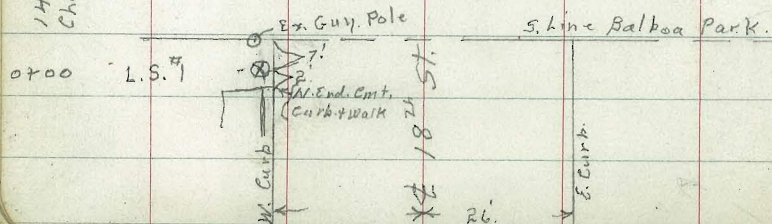 Ex. Guy. Pole
S. Line Balboa Park.
14
Ch
7'
0+00 L.S. #1
2'
N. End. Cmt.
Curb & walk
W. Curb
℄ 18th St.
E. Curb.
26'